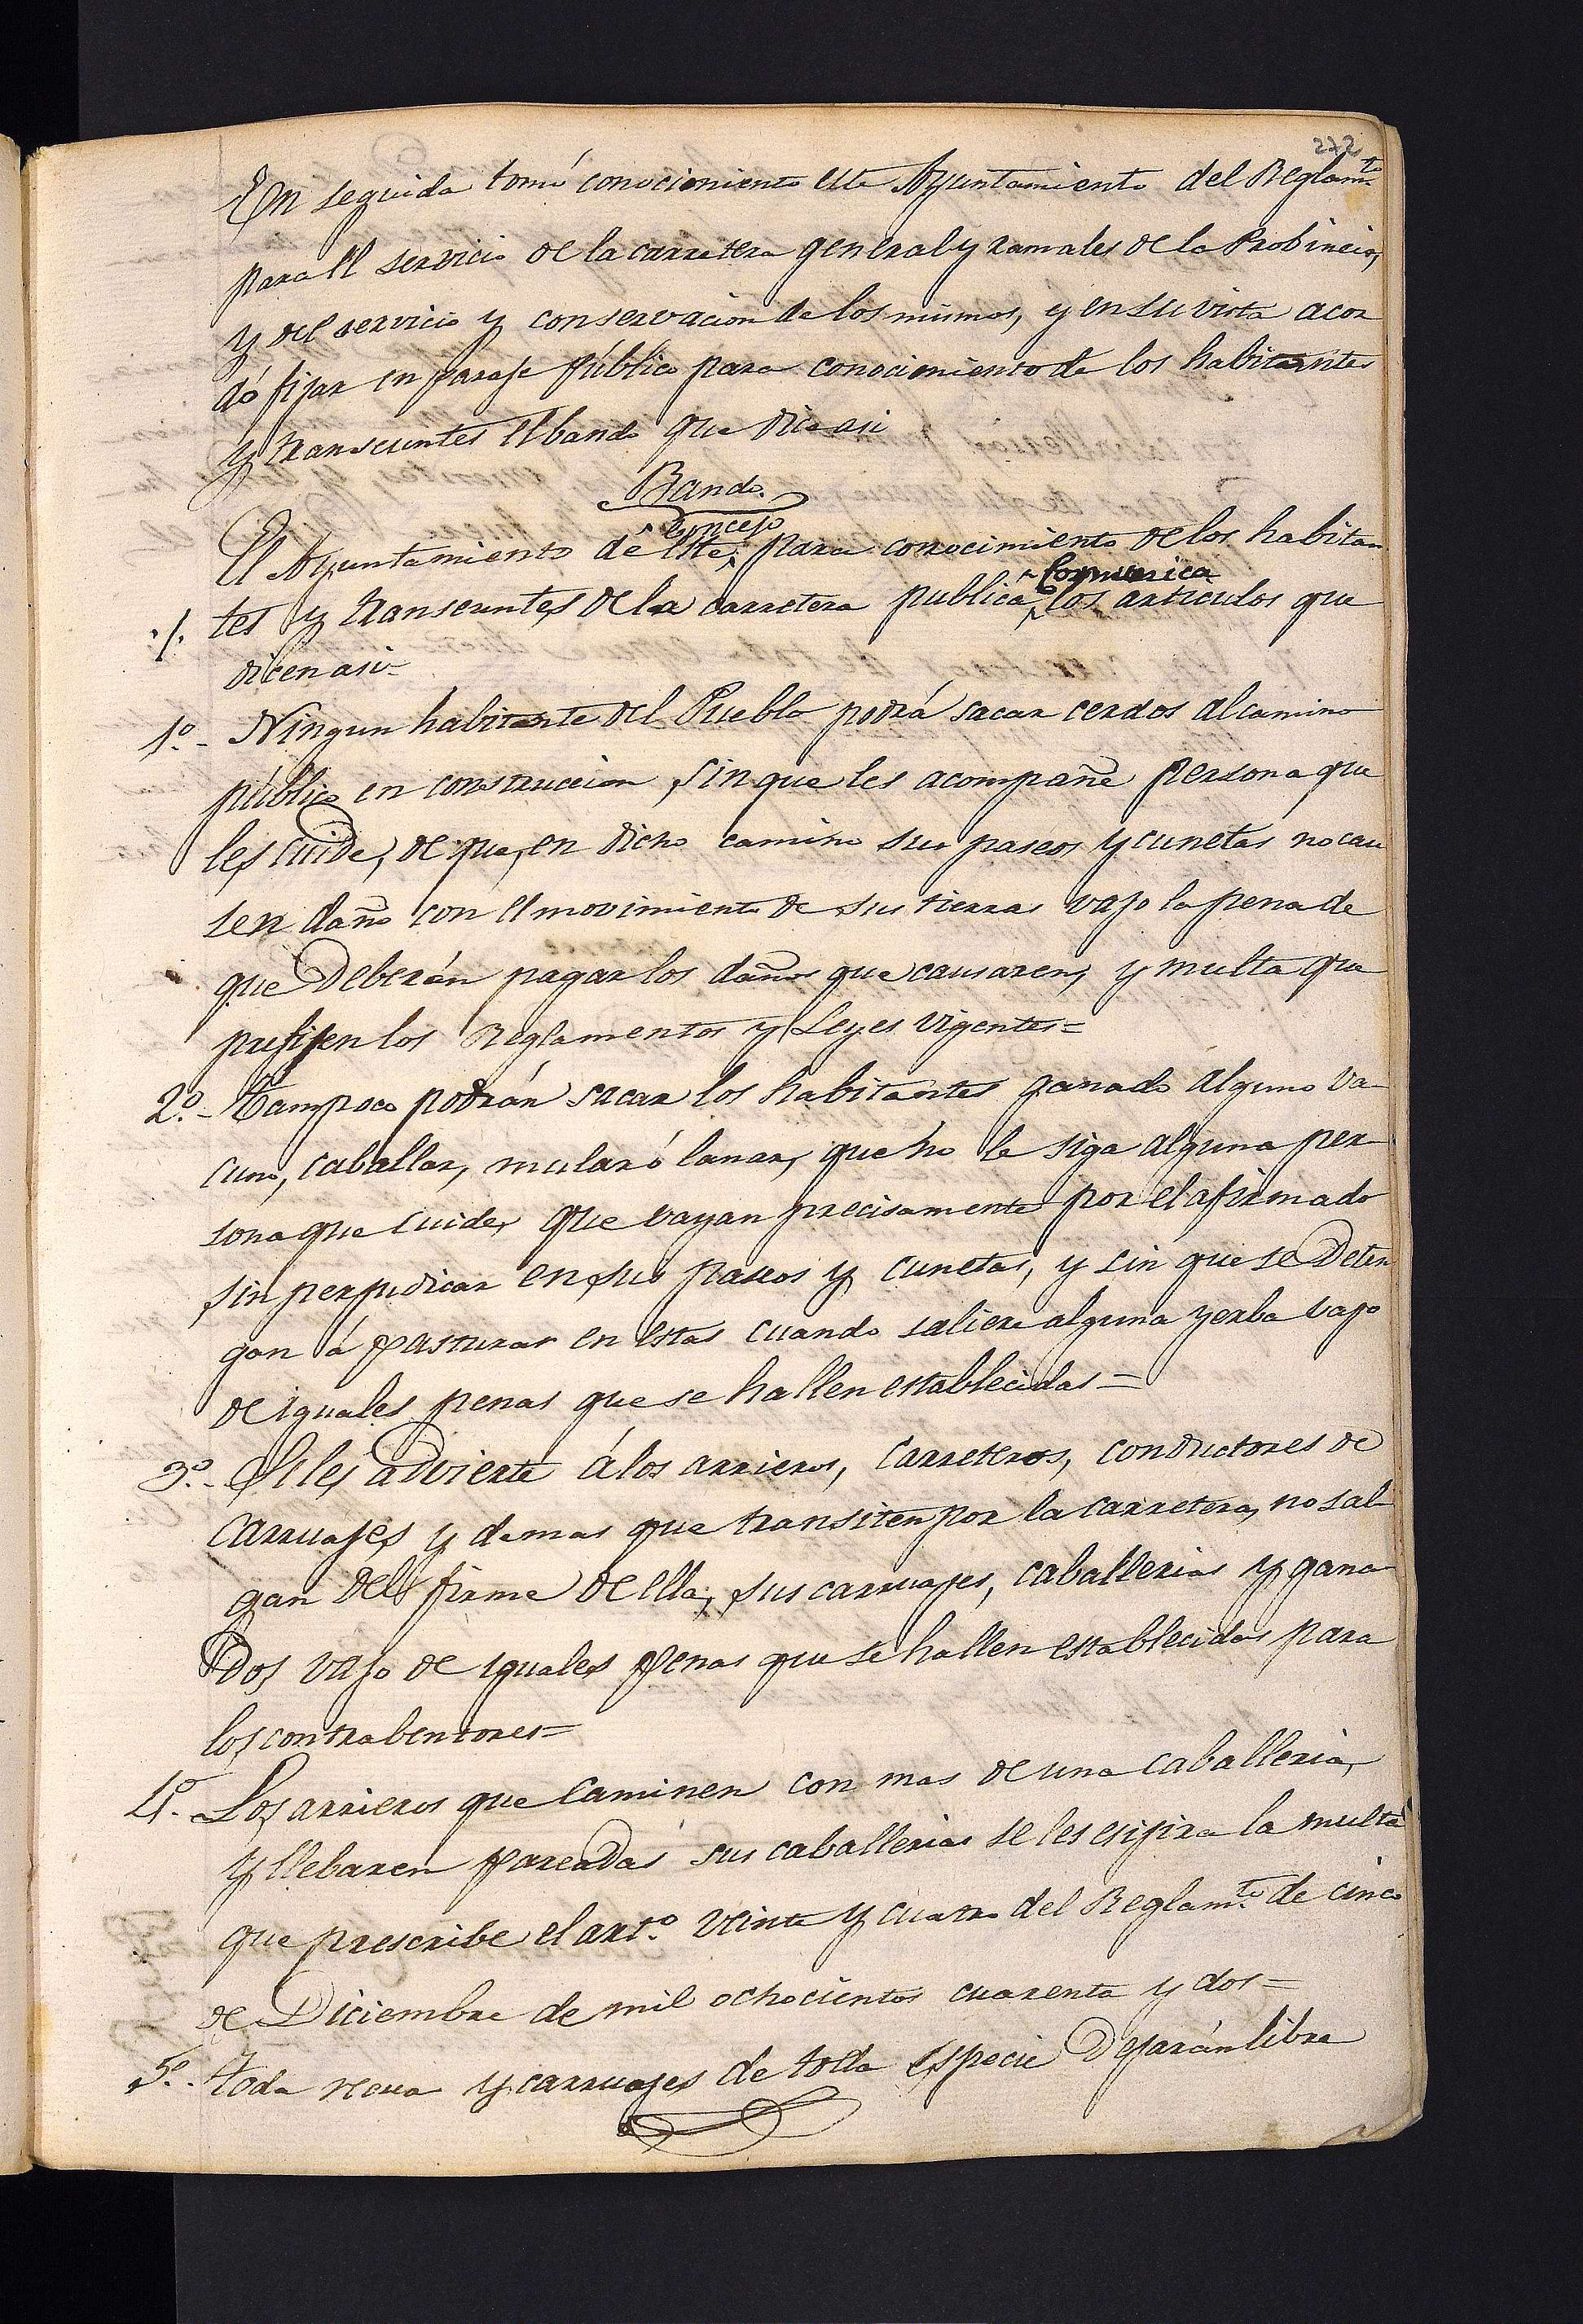 272
En seguida tomó conocimiento este Ayuntamiento del Reglam.to
para el servicio de la carretera general y ramales de la Probincia,
y del servicio y conservacion de los mismos, y en su vista acor
dó fijar en paraje público para conocimiento de los habitantes
y transeuntes el bando que dice asi
Bando.
^ concejo
El Ayuntamiento de este ^ para conocimiento de los habitan
^ Comunica
./. tes y transeuntes de la carretera publica ^ los articulos que
dicen asi-
1.º- Ningun habitante del Pueblo podrá sacar cerdos al camino
público en construccion, sin que les acompañe persona que
les cuide, de que, en dicho camino sus paseos y cunetas no cau
sen daño con el movimiento de sus tierras vajo la pena de
que deberán pagar los daños que causaren, y multa que
prefijen los Reglamentos y Leyes vigentes=
2.º- Tampoco podrán sacar los habitantes ganado alguno va-
cuno, caballar, mular ó lanar, que no le siga alguna per-
sona que cuide, que vayan precisamente por el afirmado
sin perjudicar en sus paseos y cunetas, y sin que se deten
gan á pasturar en estas cuando saliere alguna yerba vajo
de iguales penas que se hallen establecidas=
3.º- Se les advierte á los arrieros, carreteros, conductores de
carruajes y demas que transiten por la carretera, no sal-
gan del firme de ella, sus carruajes, caballerias y gana-
dos vajo de iguales penas que se hallen establecidas para
los contrabentores=
4.º- Los arrieros que caminen con mas de una caballeria,
y llebaren pareadas sus caballerias se les esijira la multa
que prescribe el art.º veinte y cuatro del Reglam.to de cinco
de Diciembre de mil ochocientos cuarenta y dos=
5.º- Toda recua y carruajes de toda especie dejarán libre